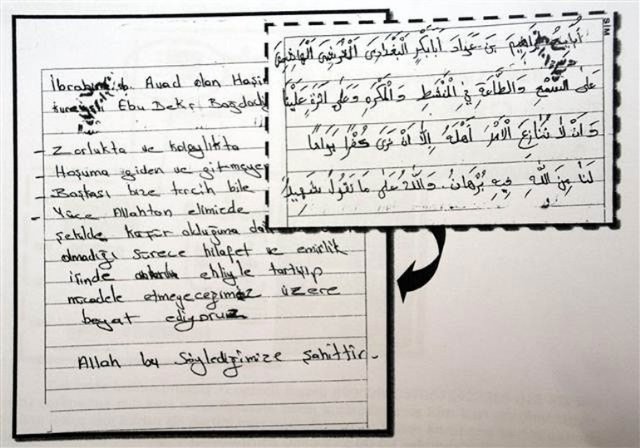 İbrahim b. Avad elan
Kureyşi Ebu Bekr Bağdadi
- Zorlukta ve kolaylıkta
Hoşuma giden ve gitmeyen
Başkası bize tercih bile
- Yüce Allahtan elimizde
şekilde kafir olduğuna
olmadığı sürece hilafet ve emirlik
işinde ehliyle tartışıp
mücadele etmeyeceğimiz üzere
beyat ediyoruz
Allah bu söylediğimize şahittir.
SİM
أُبَايِعُ إِبْرَاهِيمَ بن عَوَاد أَبَابَكْرٍ الْبَغْدَادِيَّ الْقُرَشِيَّ الْهَاشِمِيَّ
عَلَى السَّمْعِ وَالطَّاعَةِ فِي الْمَنْشَطِ وَالْمَكْرَهِ وَعَلَى أَثَرَةٍ عَلَيْنَا
وَ أَنْ لَا نُنَازِعَ الْأَمْرَ أَهْلَهُ إِلَّا أَنْ نَرَى كُفْرًا بَوَاحًا
لَنَا مِنَ اللَّهِ فِيهِ بُرْهَانٌ. وَاللَّهُ عَلَى مَا نَقُولُ شَهِيدٌ